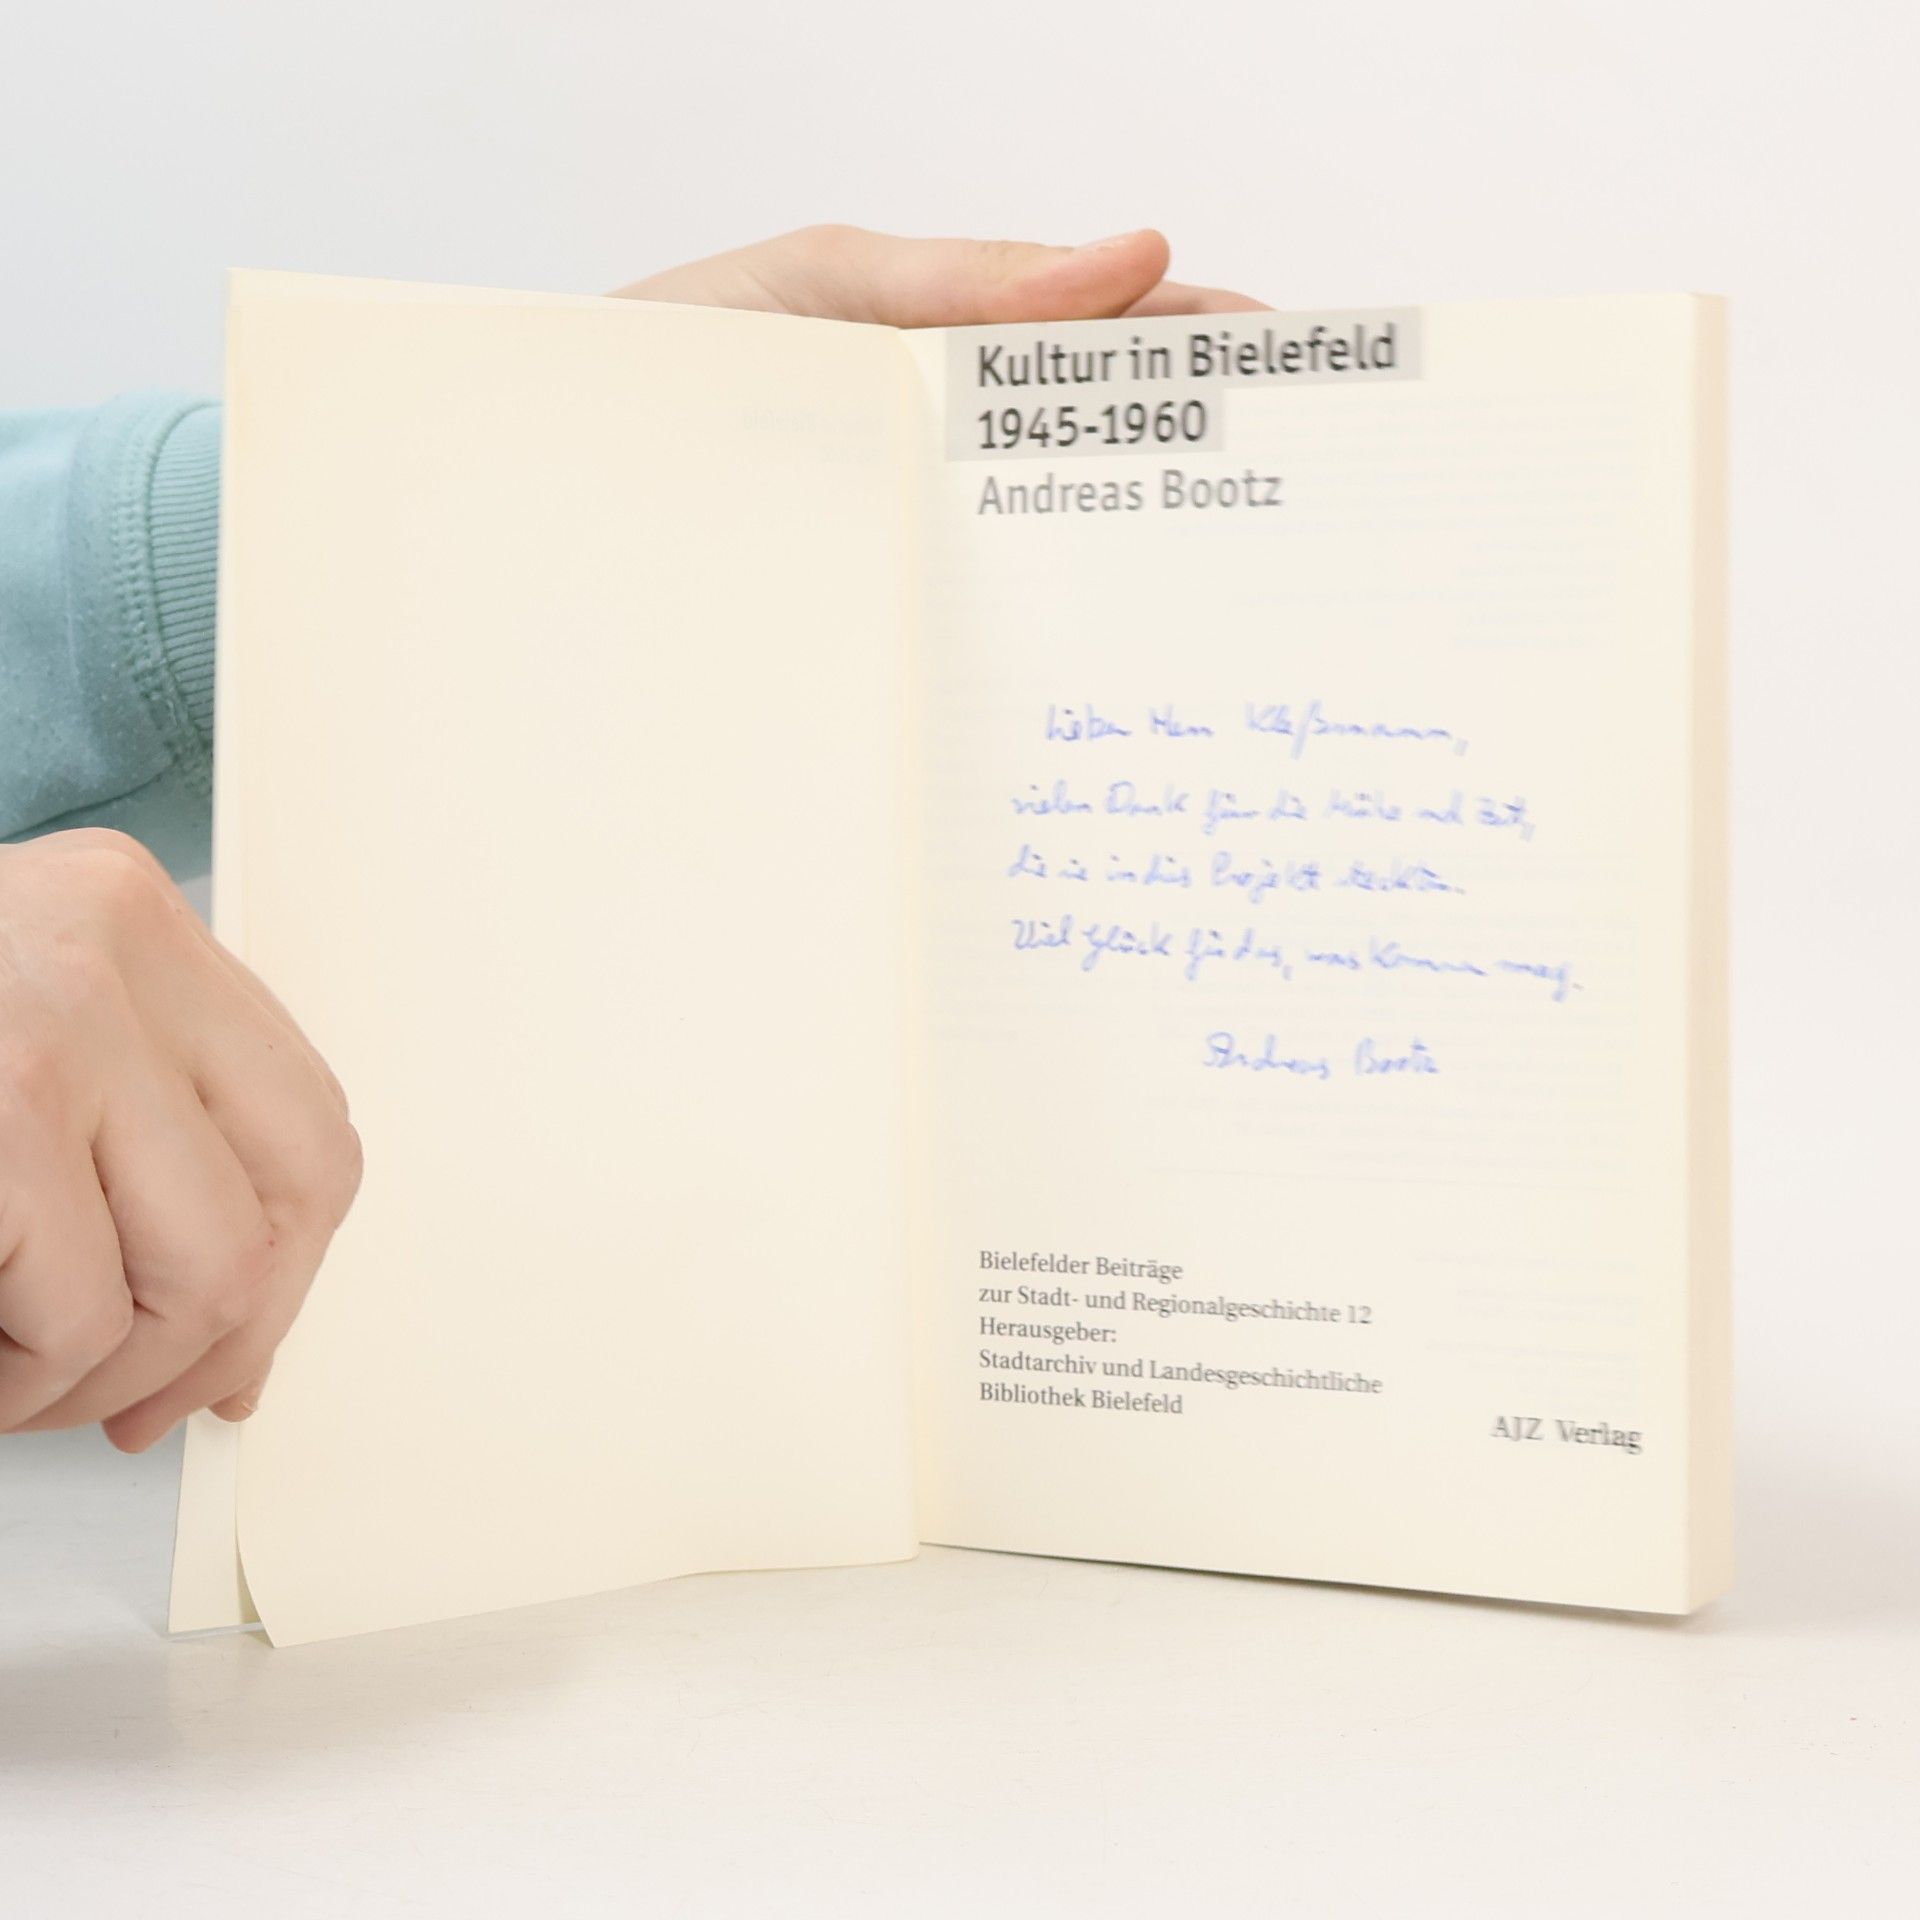 Kultur in Bielefeld
1945-1960
Andreas Bootz
Lieber Herr Kleßmann,
vielen Dank für die Mühe und Zeit,
die sie in dies Projekt steckten.
Viel Glück für das, was kommen mag.
Andreas Bootz
Bielefelder Beiträge
zur Stadt- und Regionalgeschichte 12
Herausgeber:
Stadtarchiv und Landesgeschichtliche
Bibliothek Bielefeld
AJZ Verlag